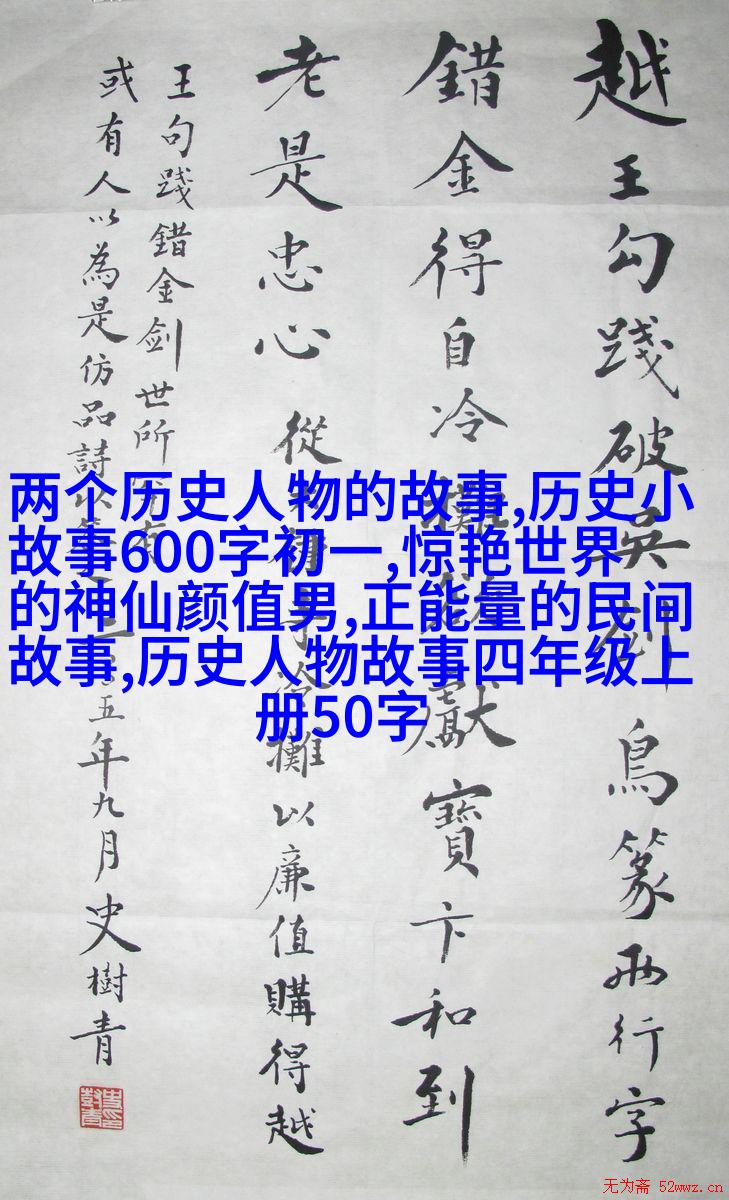 越王勾踐破吳劍鳥篆兩行字
錯金得自冷攤欲獻寶卞和到
老是忠心 從冷攤以廉值購得越
王句踐錯金劍世所罕有
或有人以為是仿品詩以五年九月史樹青
两个历史人物的故事,历史小
故事600字初一,惊艳世界
的神仙颜值男,正能量的民间
故事,历史人物故事四年级上
册50字
无为斋 52wwz.cn